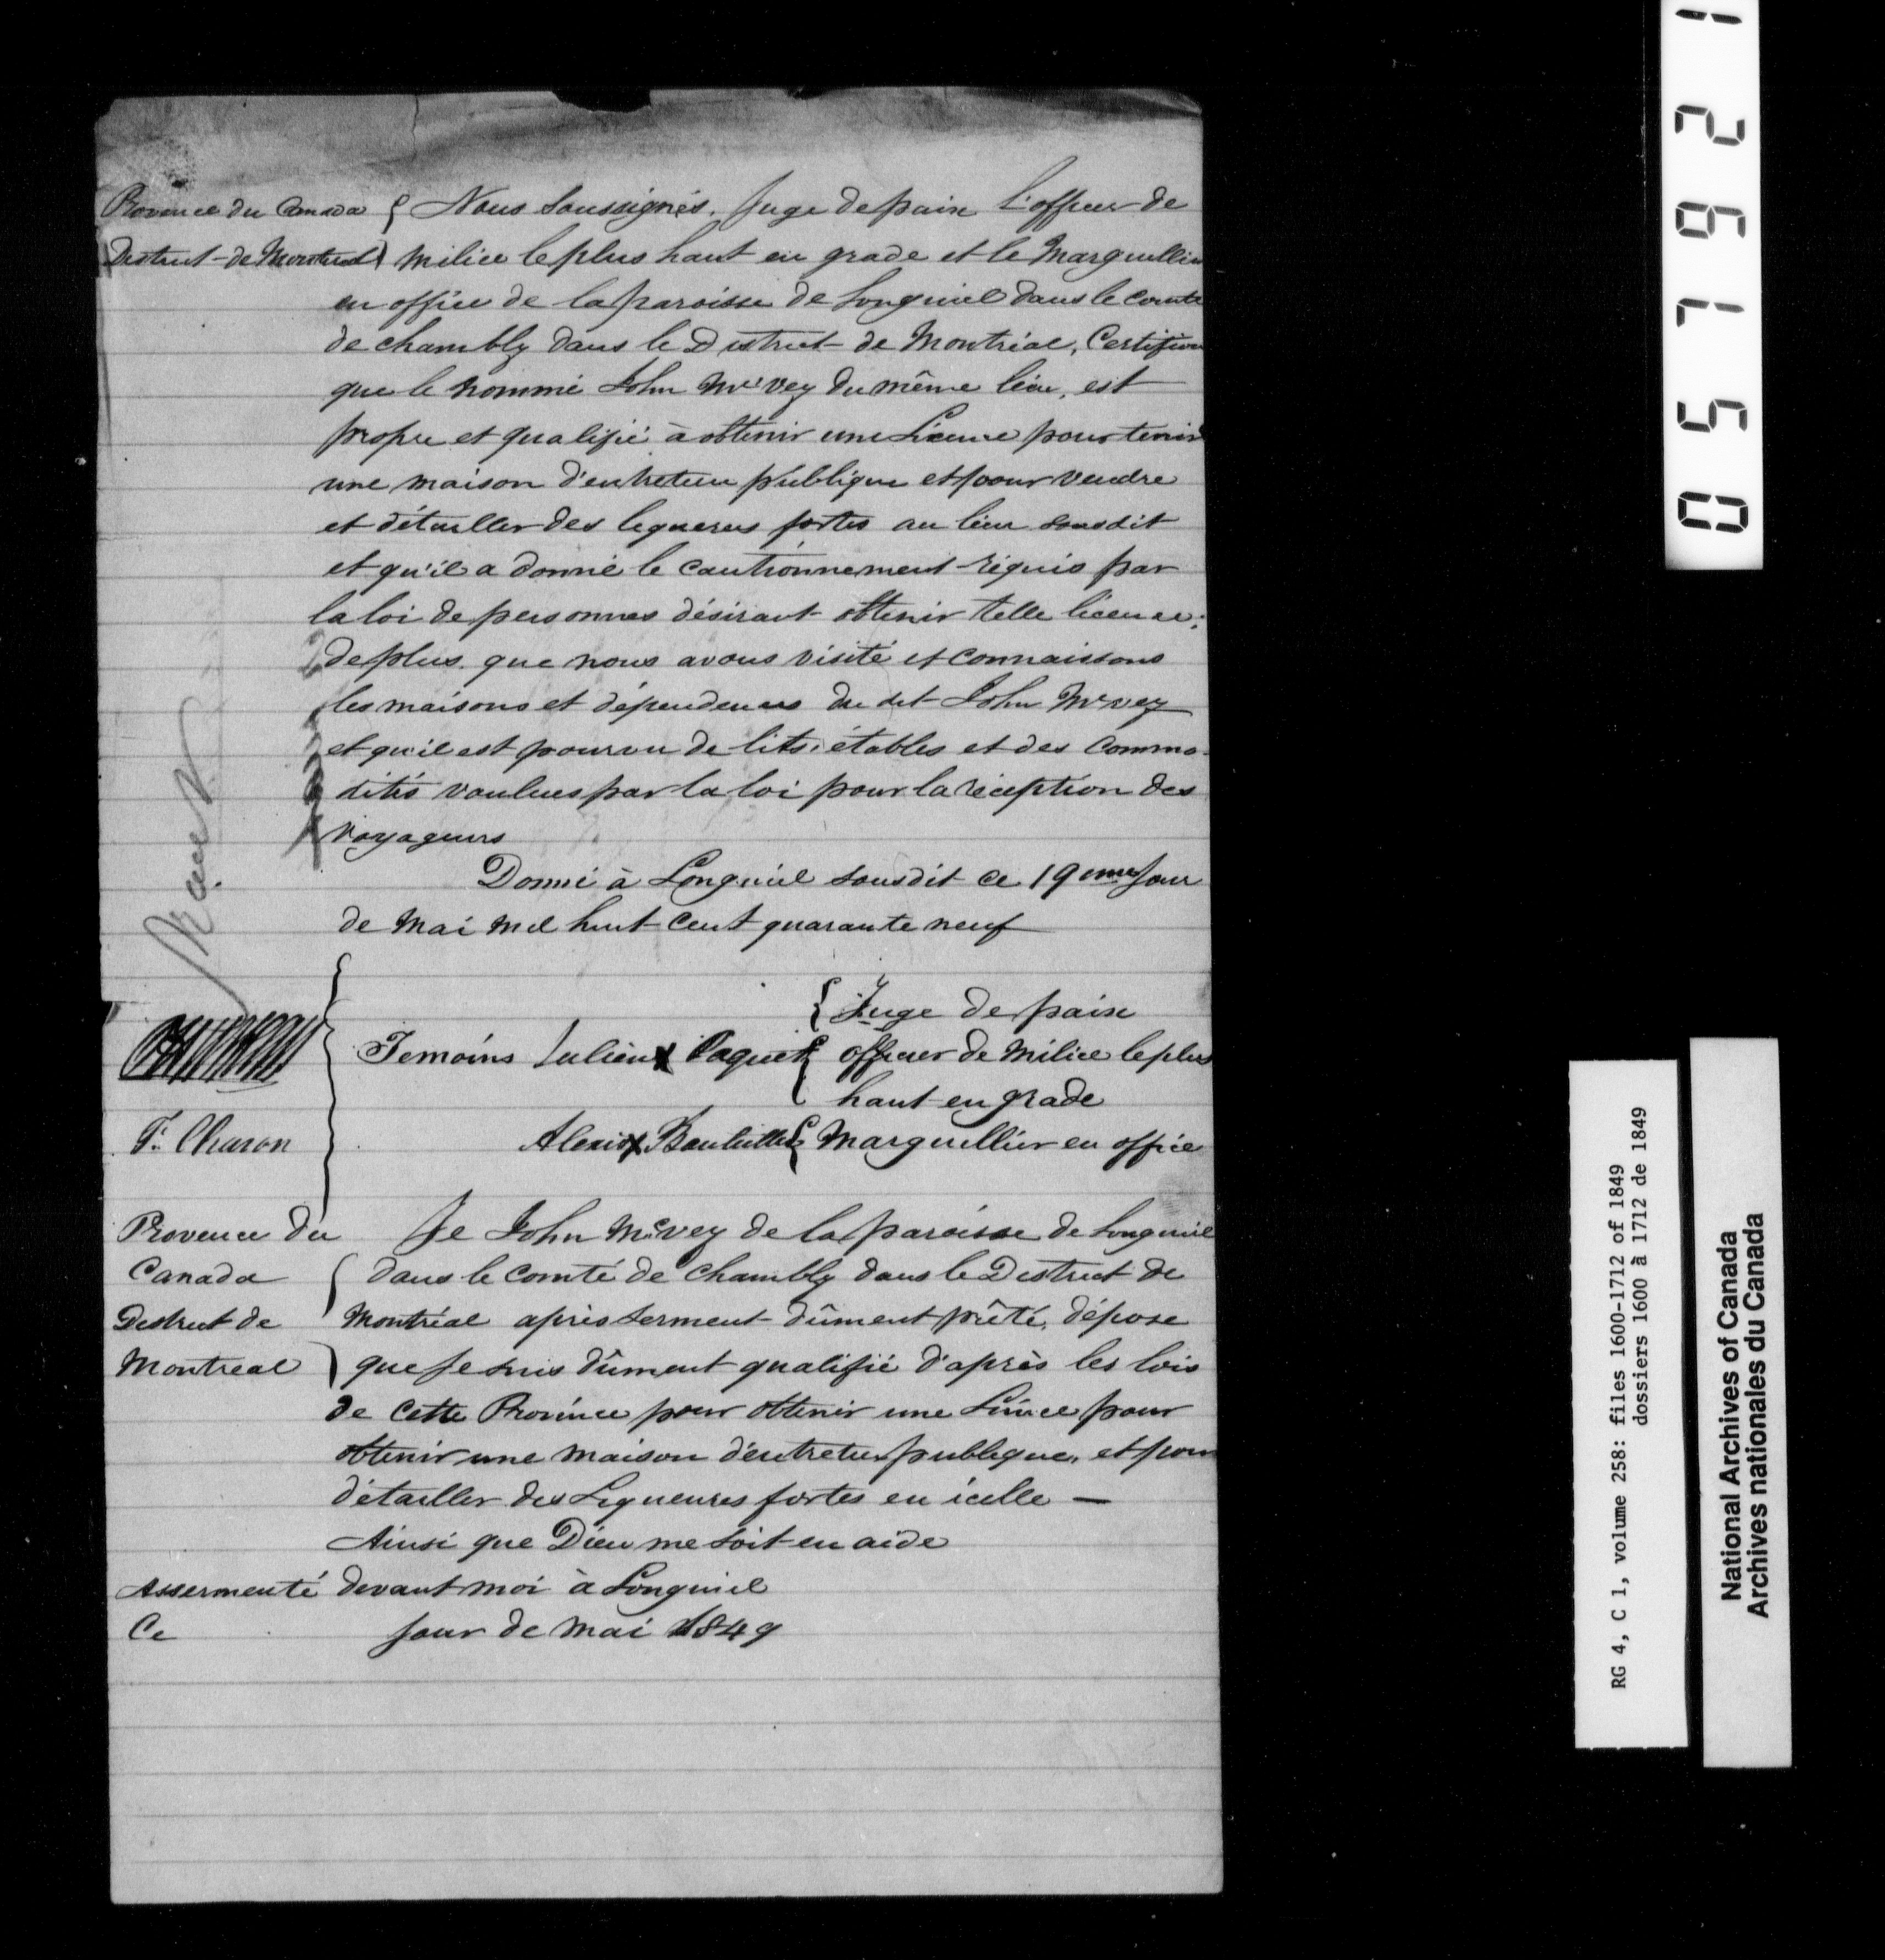 Province du Canada { Nous Soussignés, Juge de paix l'officier de
District de Montreal } milice le plus haut en grade et le Marguillier
en office de la paroisse de Longueuil dans le comté
de chambly dans le District de Montréal, Certifions
que le nommé John McVey du même lieu, est
propre et qualifié à obtenir une Licence pour tenir
une maison d'entretien publique et pour vendre
et détailler des liqueurs fortes au lieu sousdit
et qu'il a donné le cautionnement réquis par
la loi de personnes désirant obtenir telle licence;
de plus que nous avons visité et connaissons
les maisons et dépendences du dit John McVey
et qu'il est pourvu de lits, étables et des commo-
dités voulues par la loi pour la réception des
voyageurs
Donné à Longueuil sousdit ce 19eme Jour
de Mai mil huit cent quarante neuf
{ Juge de paix
Temoins Julien X Paquet { officier de Milice le plus
haut en grade
F. Charon
Alexis X { Marguillier en office
Province du Je John McVey de la paroisse de Longueuil
Canada { dans le comté de Chambly dans le District de
District de Montréal après serment dûment prêté, dépose
Montreal } que Je suis dûment qualifié d'après les lois
de cette Province pour obtenir une Licence pour
obtenir une maison d'entretien publique, et pour
détailler des Liqueures fortes en icelle —
Ainsi que Dieu me soit en aide
Assermenté devant moi à Longueuil
Ce Jour de Mai 1849
057921
RG 4, C 1, volume 258: files 1600-1712 of 1849
dossiers 1600 à 1712 de 1849
National Archives of Canada
Archives nationales du Canada